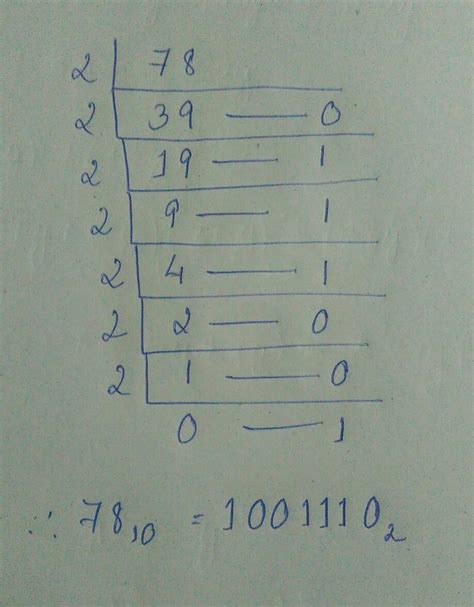 2 | 78
2 | 39 — 0
2 | 19 — 1
2 | 9 — 1
2 | 4 — 1
2 | 2 — 0
2 | 1 — 0
0 — 1
∴ 78₁₀ = 1001110₂